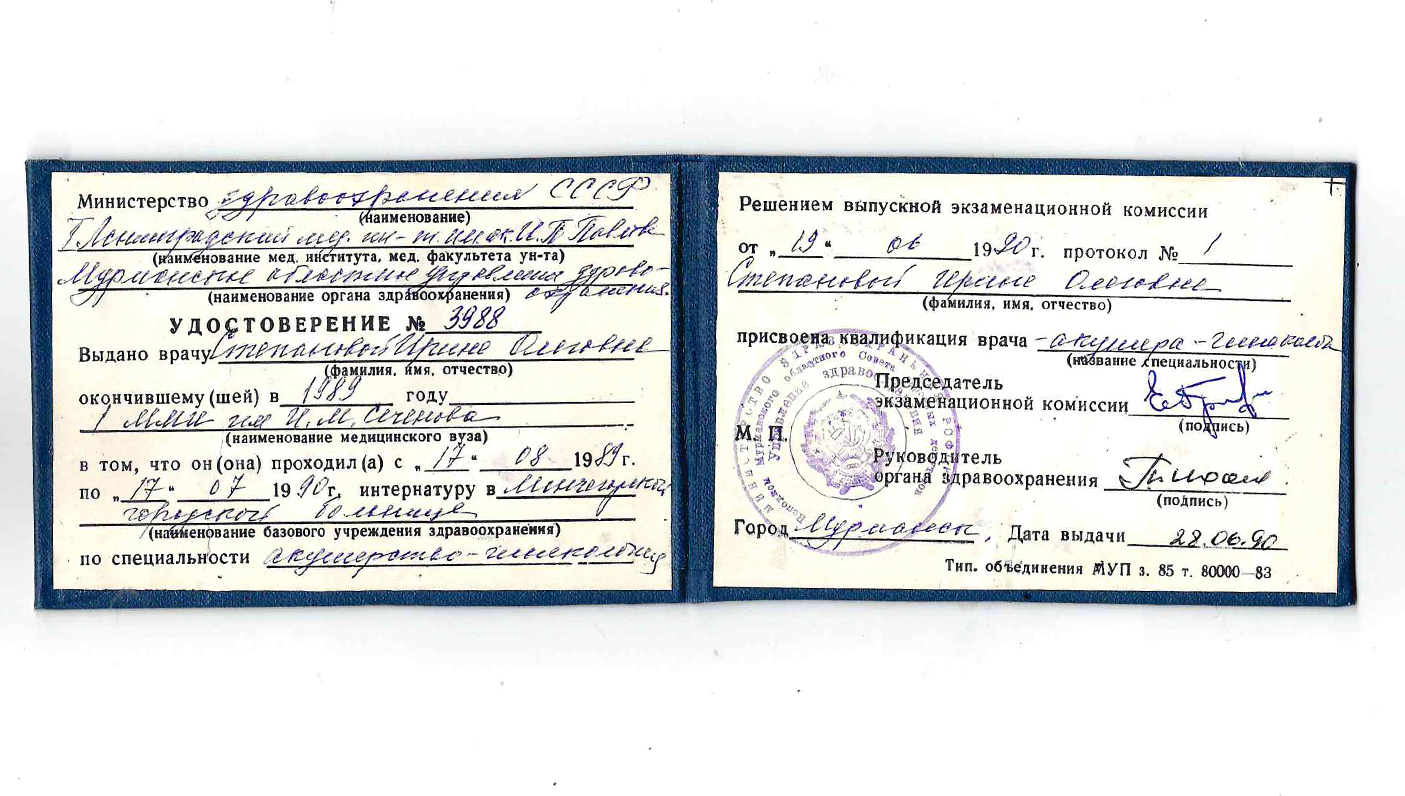 Министерство здравоохранения СССР
(наименование)
I Ленинградский мед. ин-т им. ак. И.П. Павлова
(наименование мед. института, мед. факультета ун-та)
Мурманское областное управление здраво-
охранения.
(наименование органа здравоохранения)
УДОСТОВЕРЕНИЕ № 3988
Выдано врачу Степановой Ирине Олеговне
(фамилия, имя, отчество)
окончившему (шей) в 1989 году
1 ММИ им И.М. Сеченова
(наименование медицинского вуза)
в том, что он (она) проходил(а) с „17“ 08 1989 г.
по „17“ 07 1990 г. интернатуру в Мончегорской
городской больнице
(наименование базового учреждения здравоохранения)
по специальности акушерство-гинекология
Решением выпускной экзаменационной комиссии
от „19“ 06 1990 г. протокол № 1
Степановой Ирине Олеговне
(фамилия, имя, отчество)
присвоена квалификация врача - акушера-гинеколога
(название специальности)
Председатель
экзаменационной комиссии
(подпись)
М. П.
Руководитель
органа здравоохранения
(подпись)
Город Мурманск, Дата выдачи 28.06.90
Тип. объединения МУП з. 85 т. 80000—83
МИНИСТЕРСТВО ЗДРАВООХРАНЕНИЯ РСФСР
Мурманского областного Совета народных депутатов
Управление здравоохранения